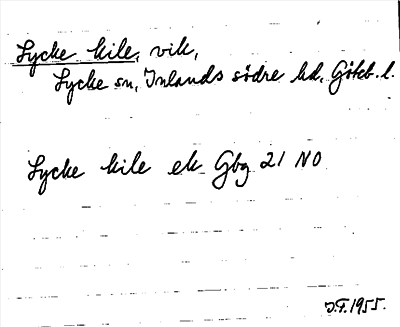 Lycke kile, vik,
Lycke sn, Inlands södre hd, Göteb. l.
Lycke kile ek Gbg 21 NO
J.F. 1955.